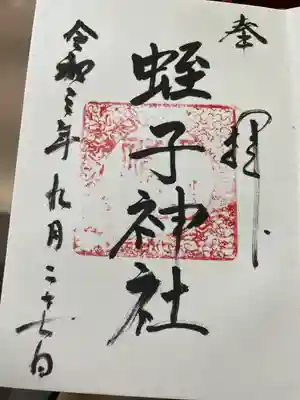 奉拝
蛭子神社
令和三年九月二十七日